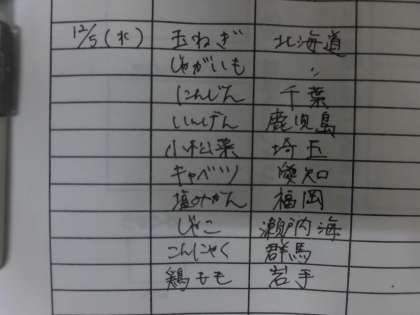 12/5(水) 玉ねぎ 北海道
じゃがいも 〃
にんじん 千葉
いんげん 鹿児島
小松菜 埼玉
キャベツ 愛知
塩みかん 福岡
じゃこ 瀬戸内海
こんにゃく 群馬
鶏もも 岩手